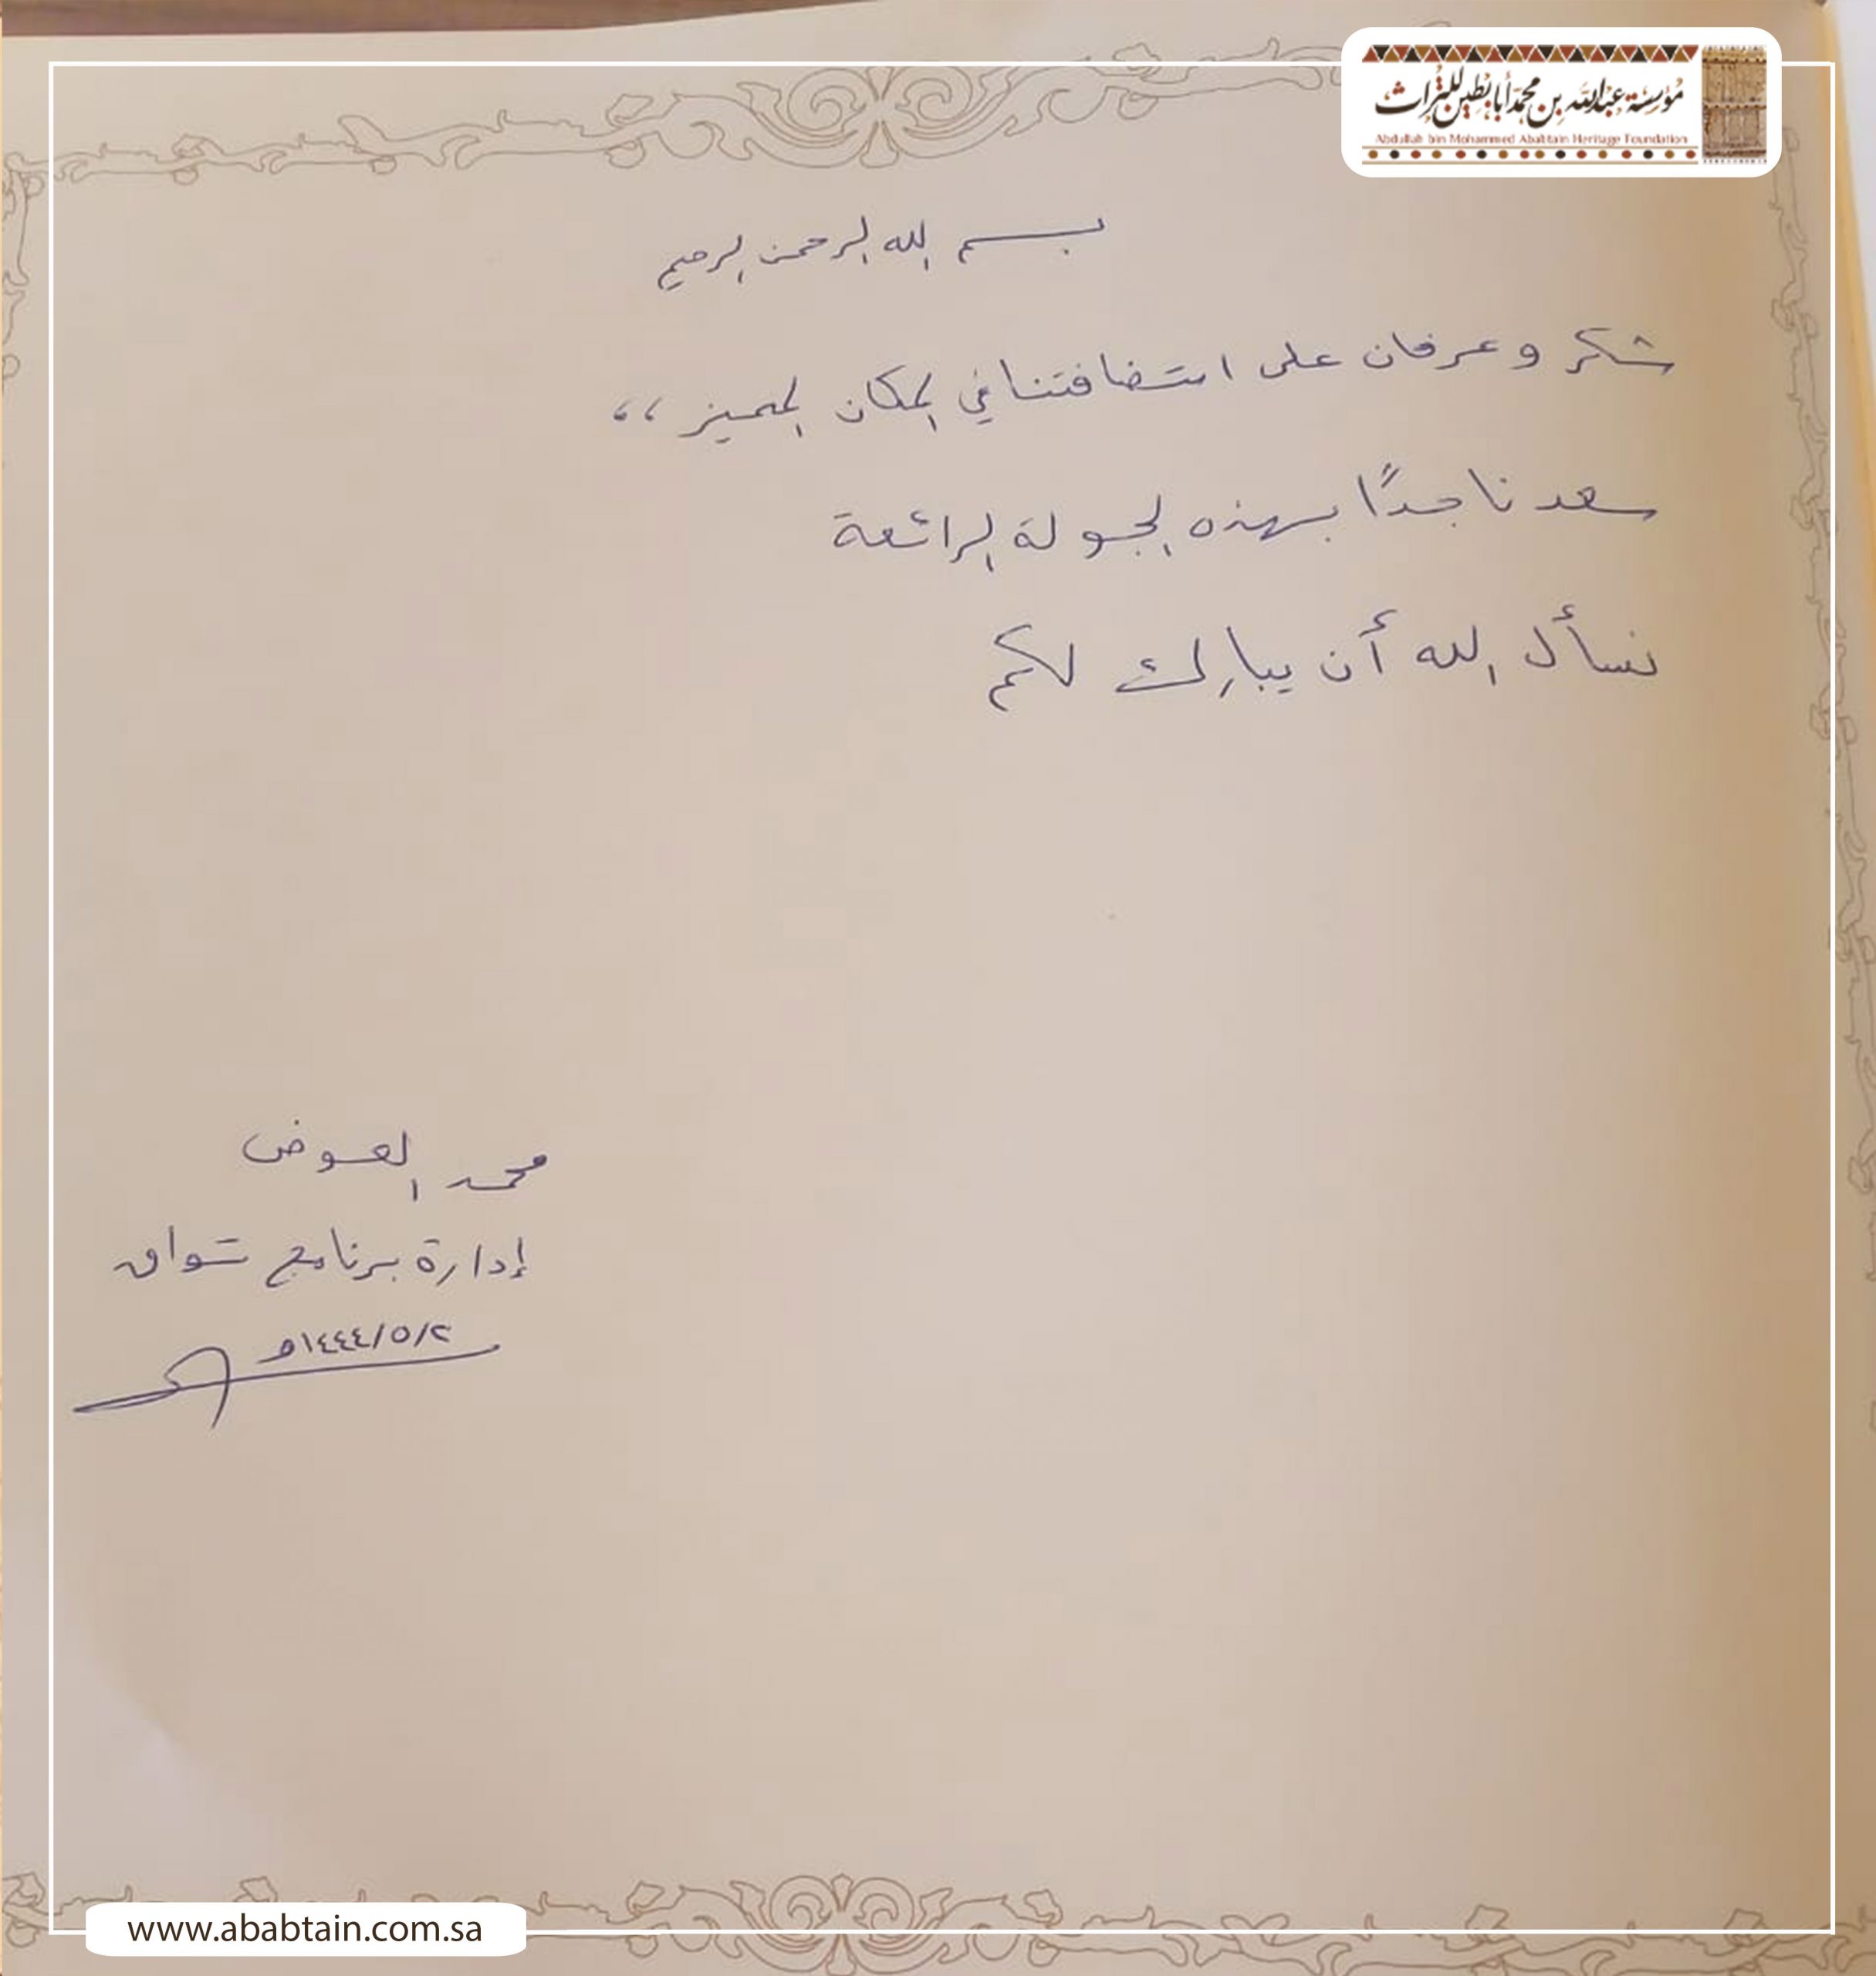 مؤسسة عبدالله بن محمد أبابطين للتراث
Abdullah bin Mohammed Ababtain Heritage Foundation
بسم الله الرحمن الرحيم
شكر وعرفان على استضافتنا في المكان المميز ،،
سعدنا جدًا بهذه الجولة الرائعة
نسأل الله أن يبارك لكم
محمد العوض
إدارة برنامج تواق
٢/٥/١٤٤٤هـ
www.ababtain.com.sa